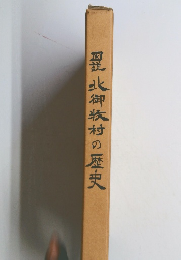 北御牧村の歴史